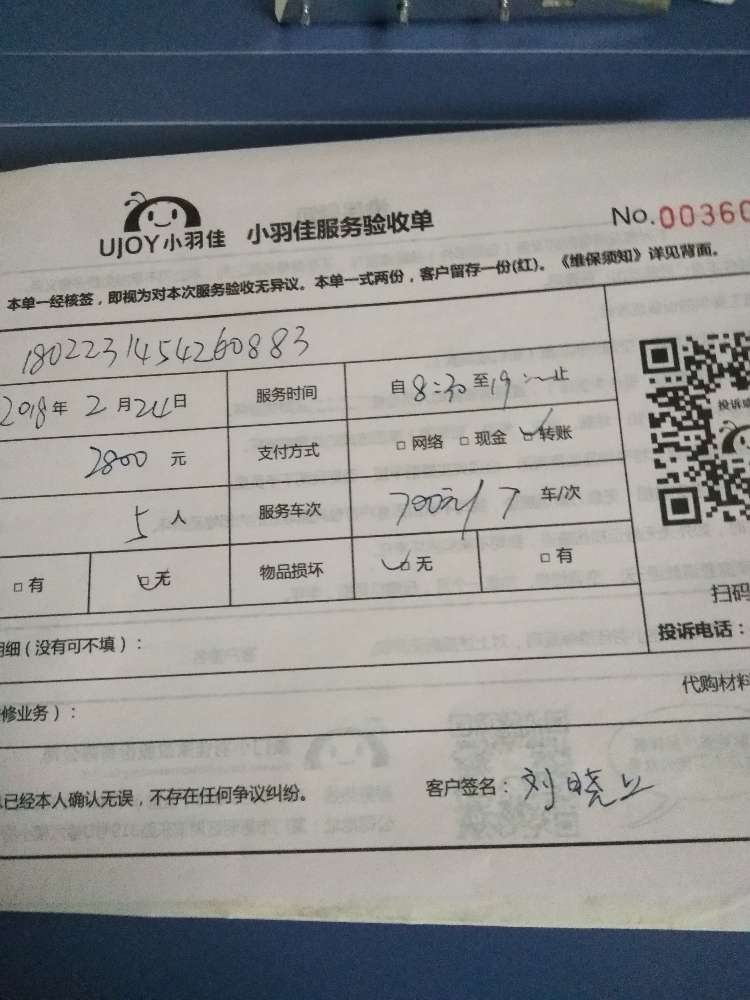 UJOY小羽佳 小羽佳服务验收单 No.00360
本单一经核签，即视为对本次服务验收无异议。本单一式两份，客户留存一份(红)。《维保须知》详见背面。
1802231454260883
2018年2月24日 服务时间 自8:30至19:~止
2800元 支付方式 □网络 □现金 □转账
5人 服务车次 700元/7 车/次
□有 □无 物品损坏 □无 □有
投诉
扫码
明细（没有可不填）：
投诉电话：
修业务）：
代购材料
已经本人确认无误，不存在任何争议纠纷。 客户签名：刘晓